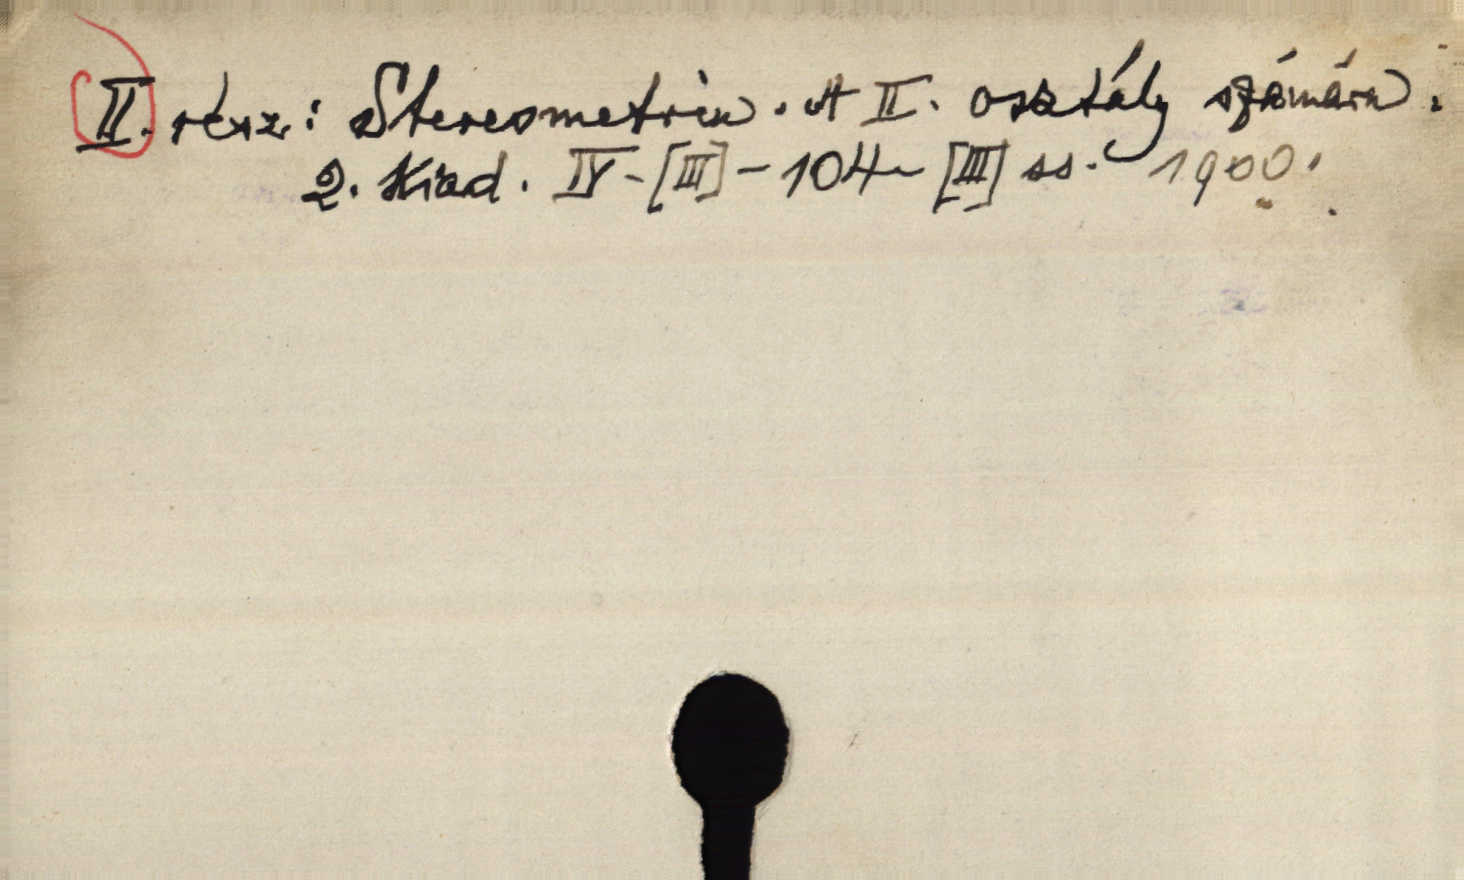 II. rész: Stereometria. A II. osztály számára.
2. Kiad. IV-[III]-104-[III] ss. 1900.